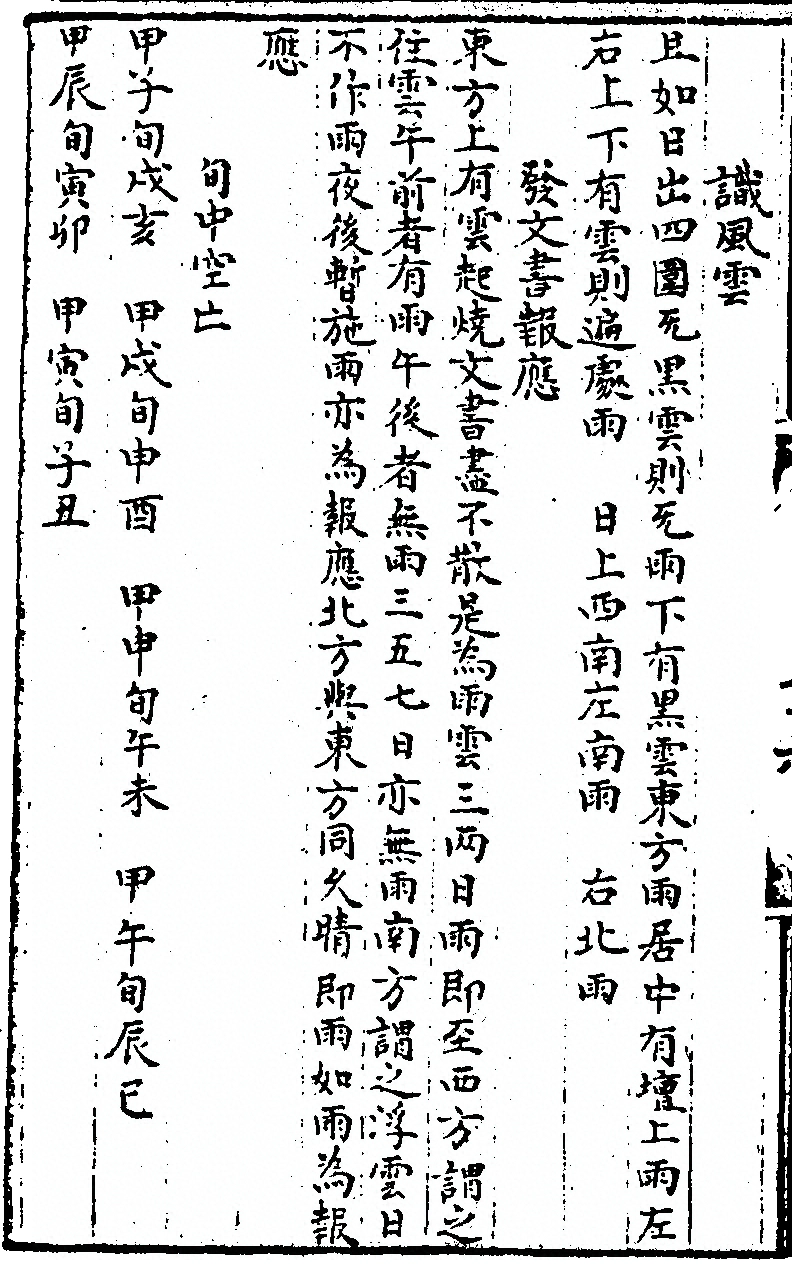 識風雲
且如日出四圍无黒雲則无雨下有黒雲東方雨居中有壇上雨左
右上下有雲則遍處雨　日上西南左南雨　右北雨
發文書報應
東方上有雲起燒文書盡不散是為雨雲三兩日雨即至西方謂之
往雲午前者有雨午後者無雨三五七日亦無雨南方謂之浮雲日
不作雨夜後暫施雨亦為報應北方與東方同久晴即雨如雨為報
應
旬中空亡
甲子旬戌亥　甲戌旬申酉　甲申旬午未　甲午旬辰巳
甲辰旬寅卯　甲寅旬子丑